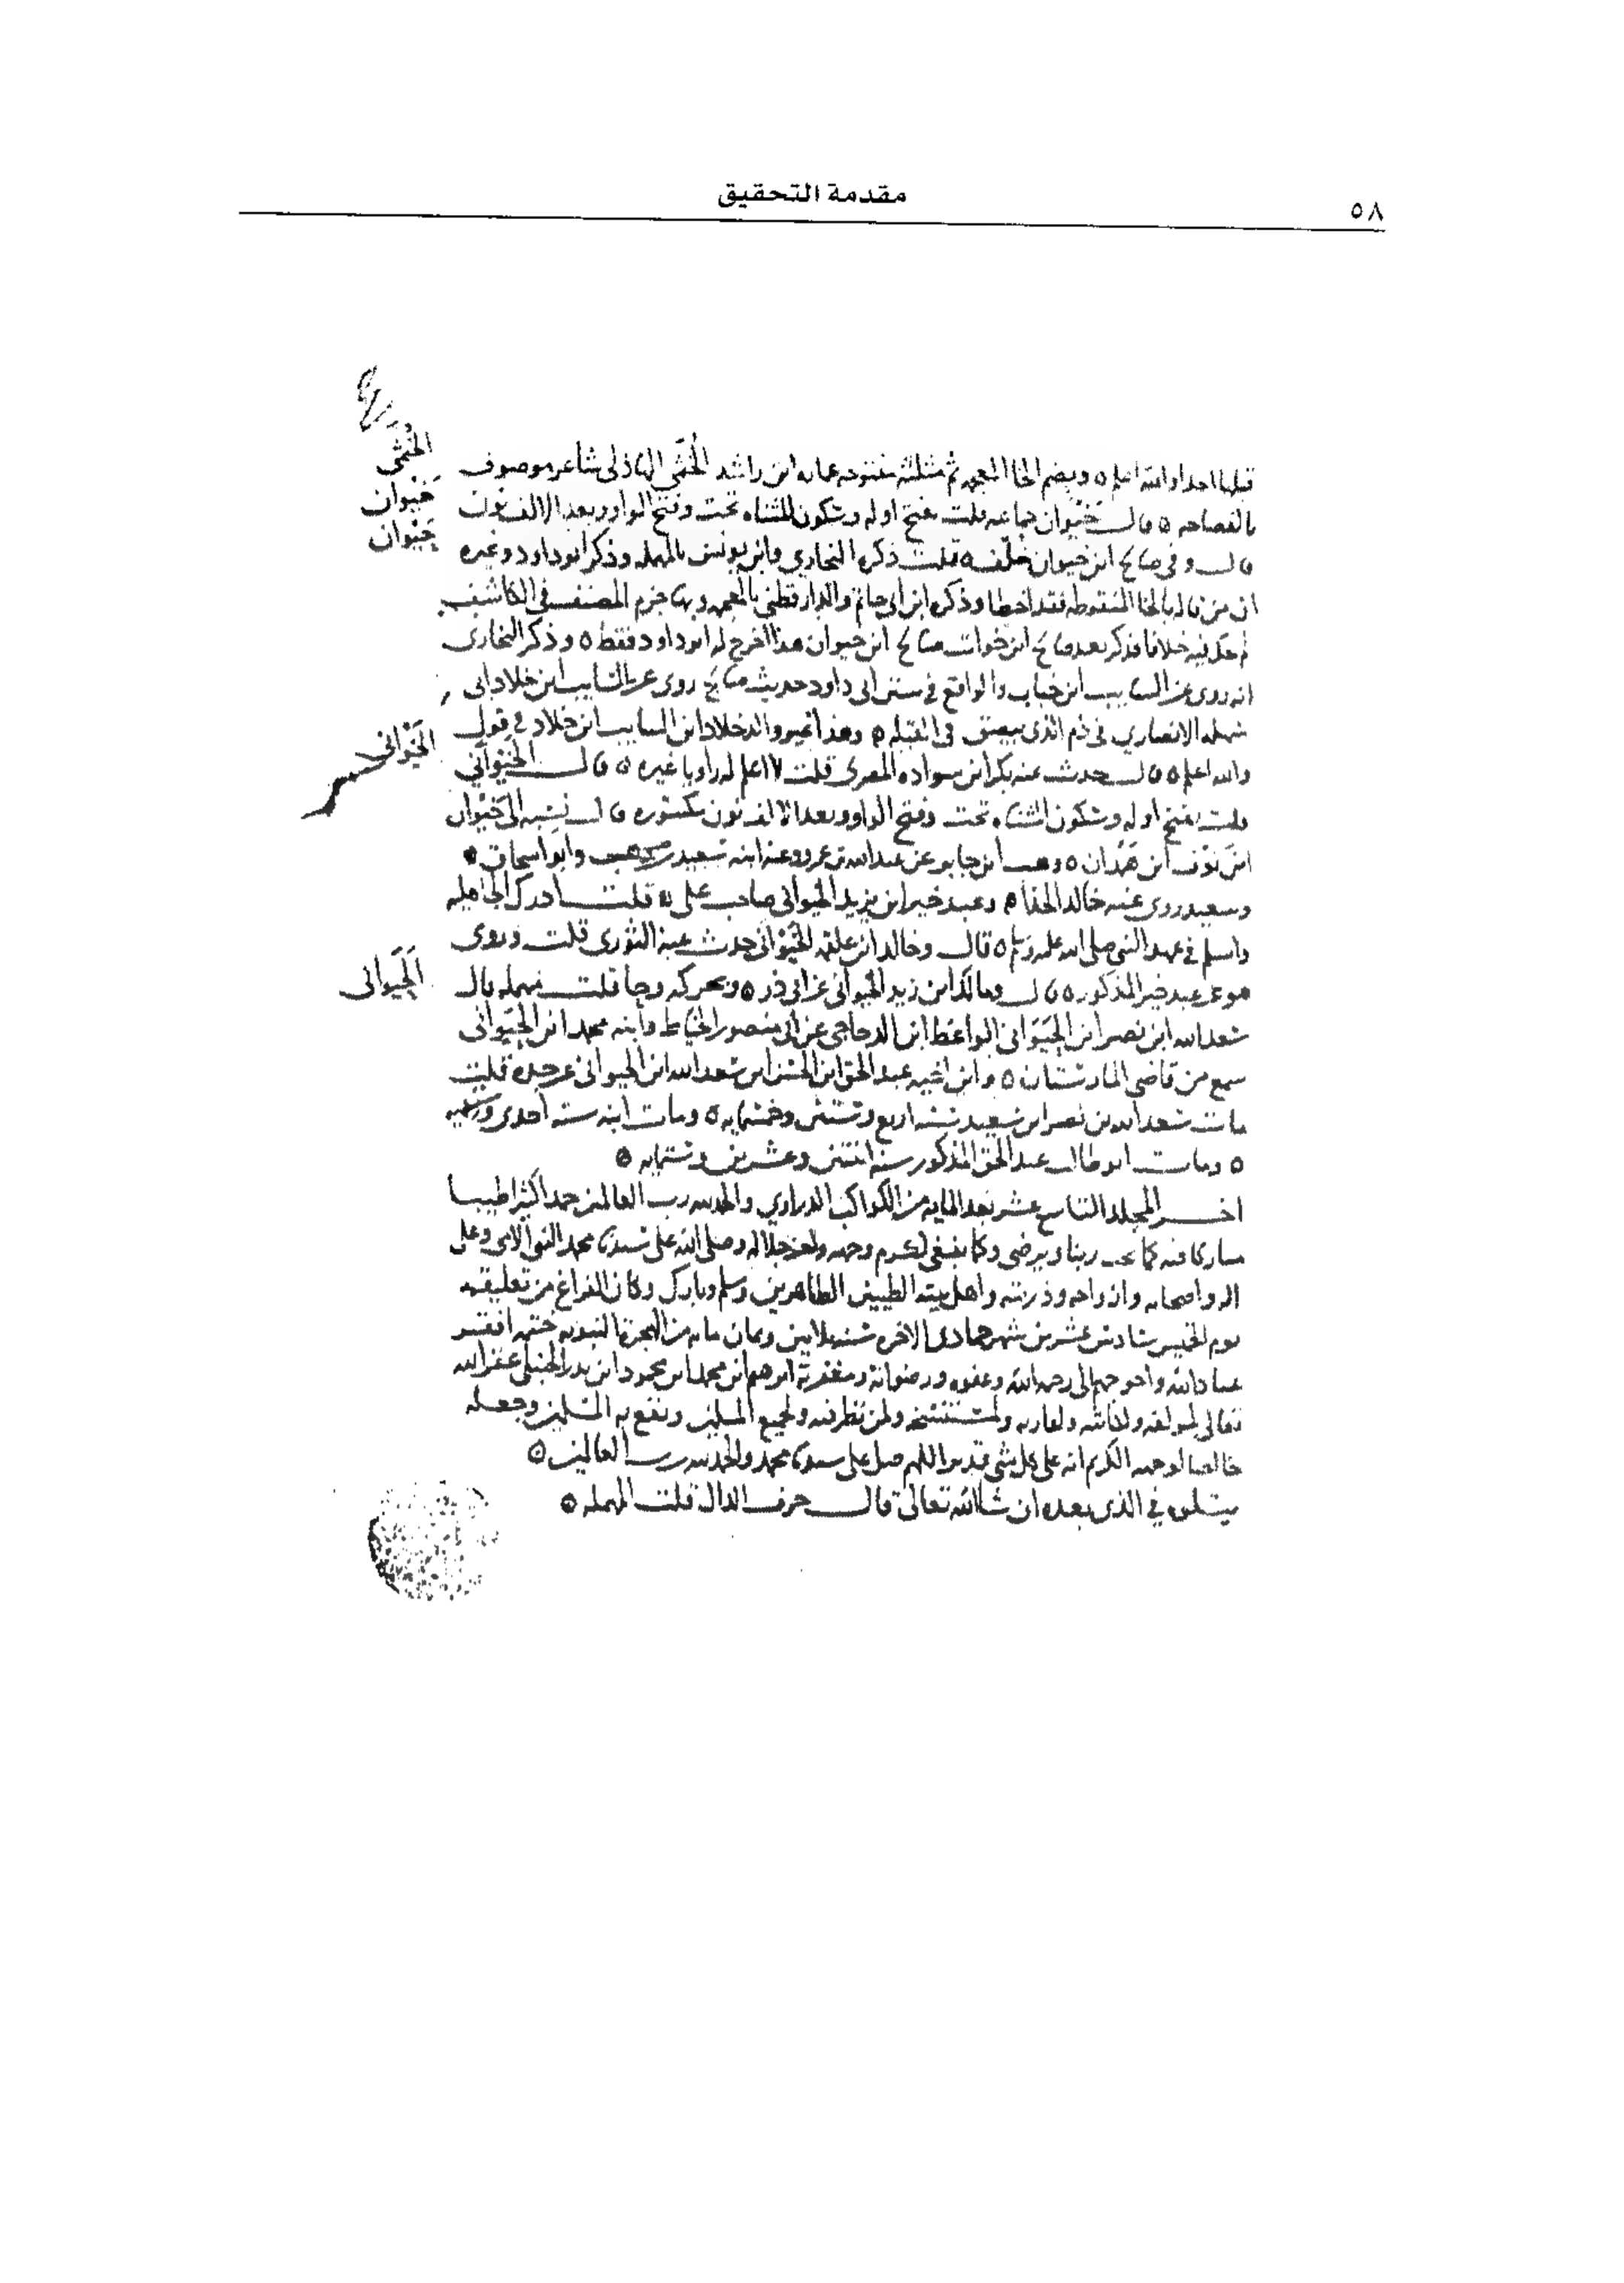 مقدمة التحقيق
٥٨
الخُثمي
خَيْوان
حَيْوان
قبلها احد والله اعلم ٥ وبضم الخا المعجمه ثم مثلثه مفتوحه عمار ابن راشد الخُثَمي الهاذلي شاعر موصوف
بالفصاحه ٥ قال خَيْوان جماعه قلت بفتح اوله وسكون المثناه تحت وفتح الواو وبعد الالف نون
قال وفي صالح ابن خيوان خلف ٥ قلت ذكره البخاري وابن يونس بالمهمله وذكر ابو داود وغيره
ان من قاله بالخا المنقوطه فقد اخطا وذكره ابن ابي حاتم والدارقطني بالمعجمه وبها جزم المصنف في الكاشف
لم يحك فيه خلافا فذكر بعد صالح ابن خوات صالح ابن خيوان هذا اخرج له ابو داود فقط ٥ وذكر البخاري
انه روى عن السايب ابن خباب والواقع في سنن ابي داود حديث صالح روى عن السايب ابن خلاد ابي
سهله الانصاري في ذم الذي يبصق في القبله ٥ وهذا غير والد خلاد ابن السايب ابن خلاد في قول
الخَيْواني
والله اعلم ٥ قال حدث عنه بكر ابن سواده المصري قلت لا اعلم له راويا غيره ٥ قال الخَيْواني
قلت بفتح اوله وسكون المثناه تحت وفتح الواو وبعد الالف نون مكسوره قال نسبه الى خَيْوان
ابن نَوْف ابن هَمْدان ٥ وهب ابن جابر عن عبد الله بن عمرو وعنه ابنه سعيد وابو اسحاق ٥
وسعيد روى عنه خالد الحذا ٥ وعبد خير ابن يزيد الخيواني صاحب علي ٥ قلت ادرك الجاهليه
واسلم في عهد النبي صلى الله عليه وسلم ٥ قال وخالد ابن علقمه الخَيْواني حدث عنه الثوري قلت وروى
الجَيَواني
هو عن عبد خير المذكور ٥ قال ومالك ابن زيد الخيواني عن ابي ذر ٥ وبحركه وجا قلت مهمله قال
سعد الله ابن نصر ابن الحَيَواني الواعظ ابن الدجاجي عن ابي منصور الخياط وابنه محمد ابن الحَيَواني
سمع من قاضي المارستان ٥ وابن اخيه عبد الحق ابن الحسن ابن سعد الله ابن الحيواني عن جده قلت
مات سعد الله بن نصر ابن سعيد سنه اربع وستين وخمسمايه ٥ ومات ابنه سنه احدى وستميه
٥ ومات ابو طالب عبد الحق المذكور سنه اثنتين وعشرين وستمايه ٥
اخر المجلد التاسع عشر بعد المايه من الكواكب الدراري والحمد لله رب العالمين حمدا كثيرا طيبا
مباركا فيه كما يحب ربنا ويرضى وكما ينبغي لكرم وجهه ولعز جلاله وصلى الله على سيدنا محمد النبي الامي وعلى
اله واصحابه وازواجه وذريته واهل بيته الطيبين الطاهرين وسلم وبارك وكان الفراغ من تعليقه
يوم الخميس سادس عشرين شهر جمادى الاخره سنه ثلاثين وثمان مايه من الهجرة النبويه ختمه افقر
عباد الله واحوجهم الى رحمة الله وعفوه ورضوانه ومغفرته ابرهيم ابن محمد ابن محمود ابن بدر الحنبلي غفر الله
تعالى لمولفه ولكاتبه ولقاريه ولمستنسخه ولمن نظر فيه ولجميع المسلمين ونفع به المسلمين وجعله
خالصا لوجهه الكريم انه على كل شي قدير اللهم صل على سيدنا محمد والحمد لله رب العالمين ٥
يتلوه في الذي بعده ان شا الله تعالى قال حرف الدال قلت المهمله ٥